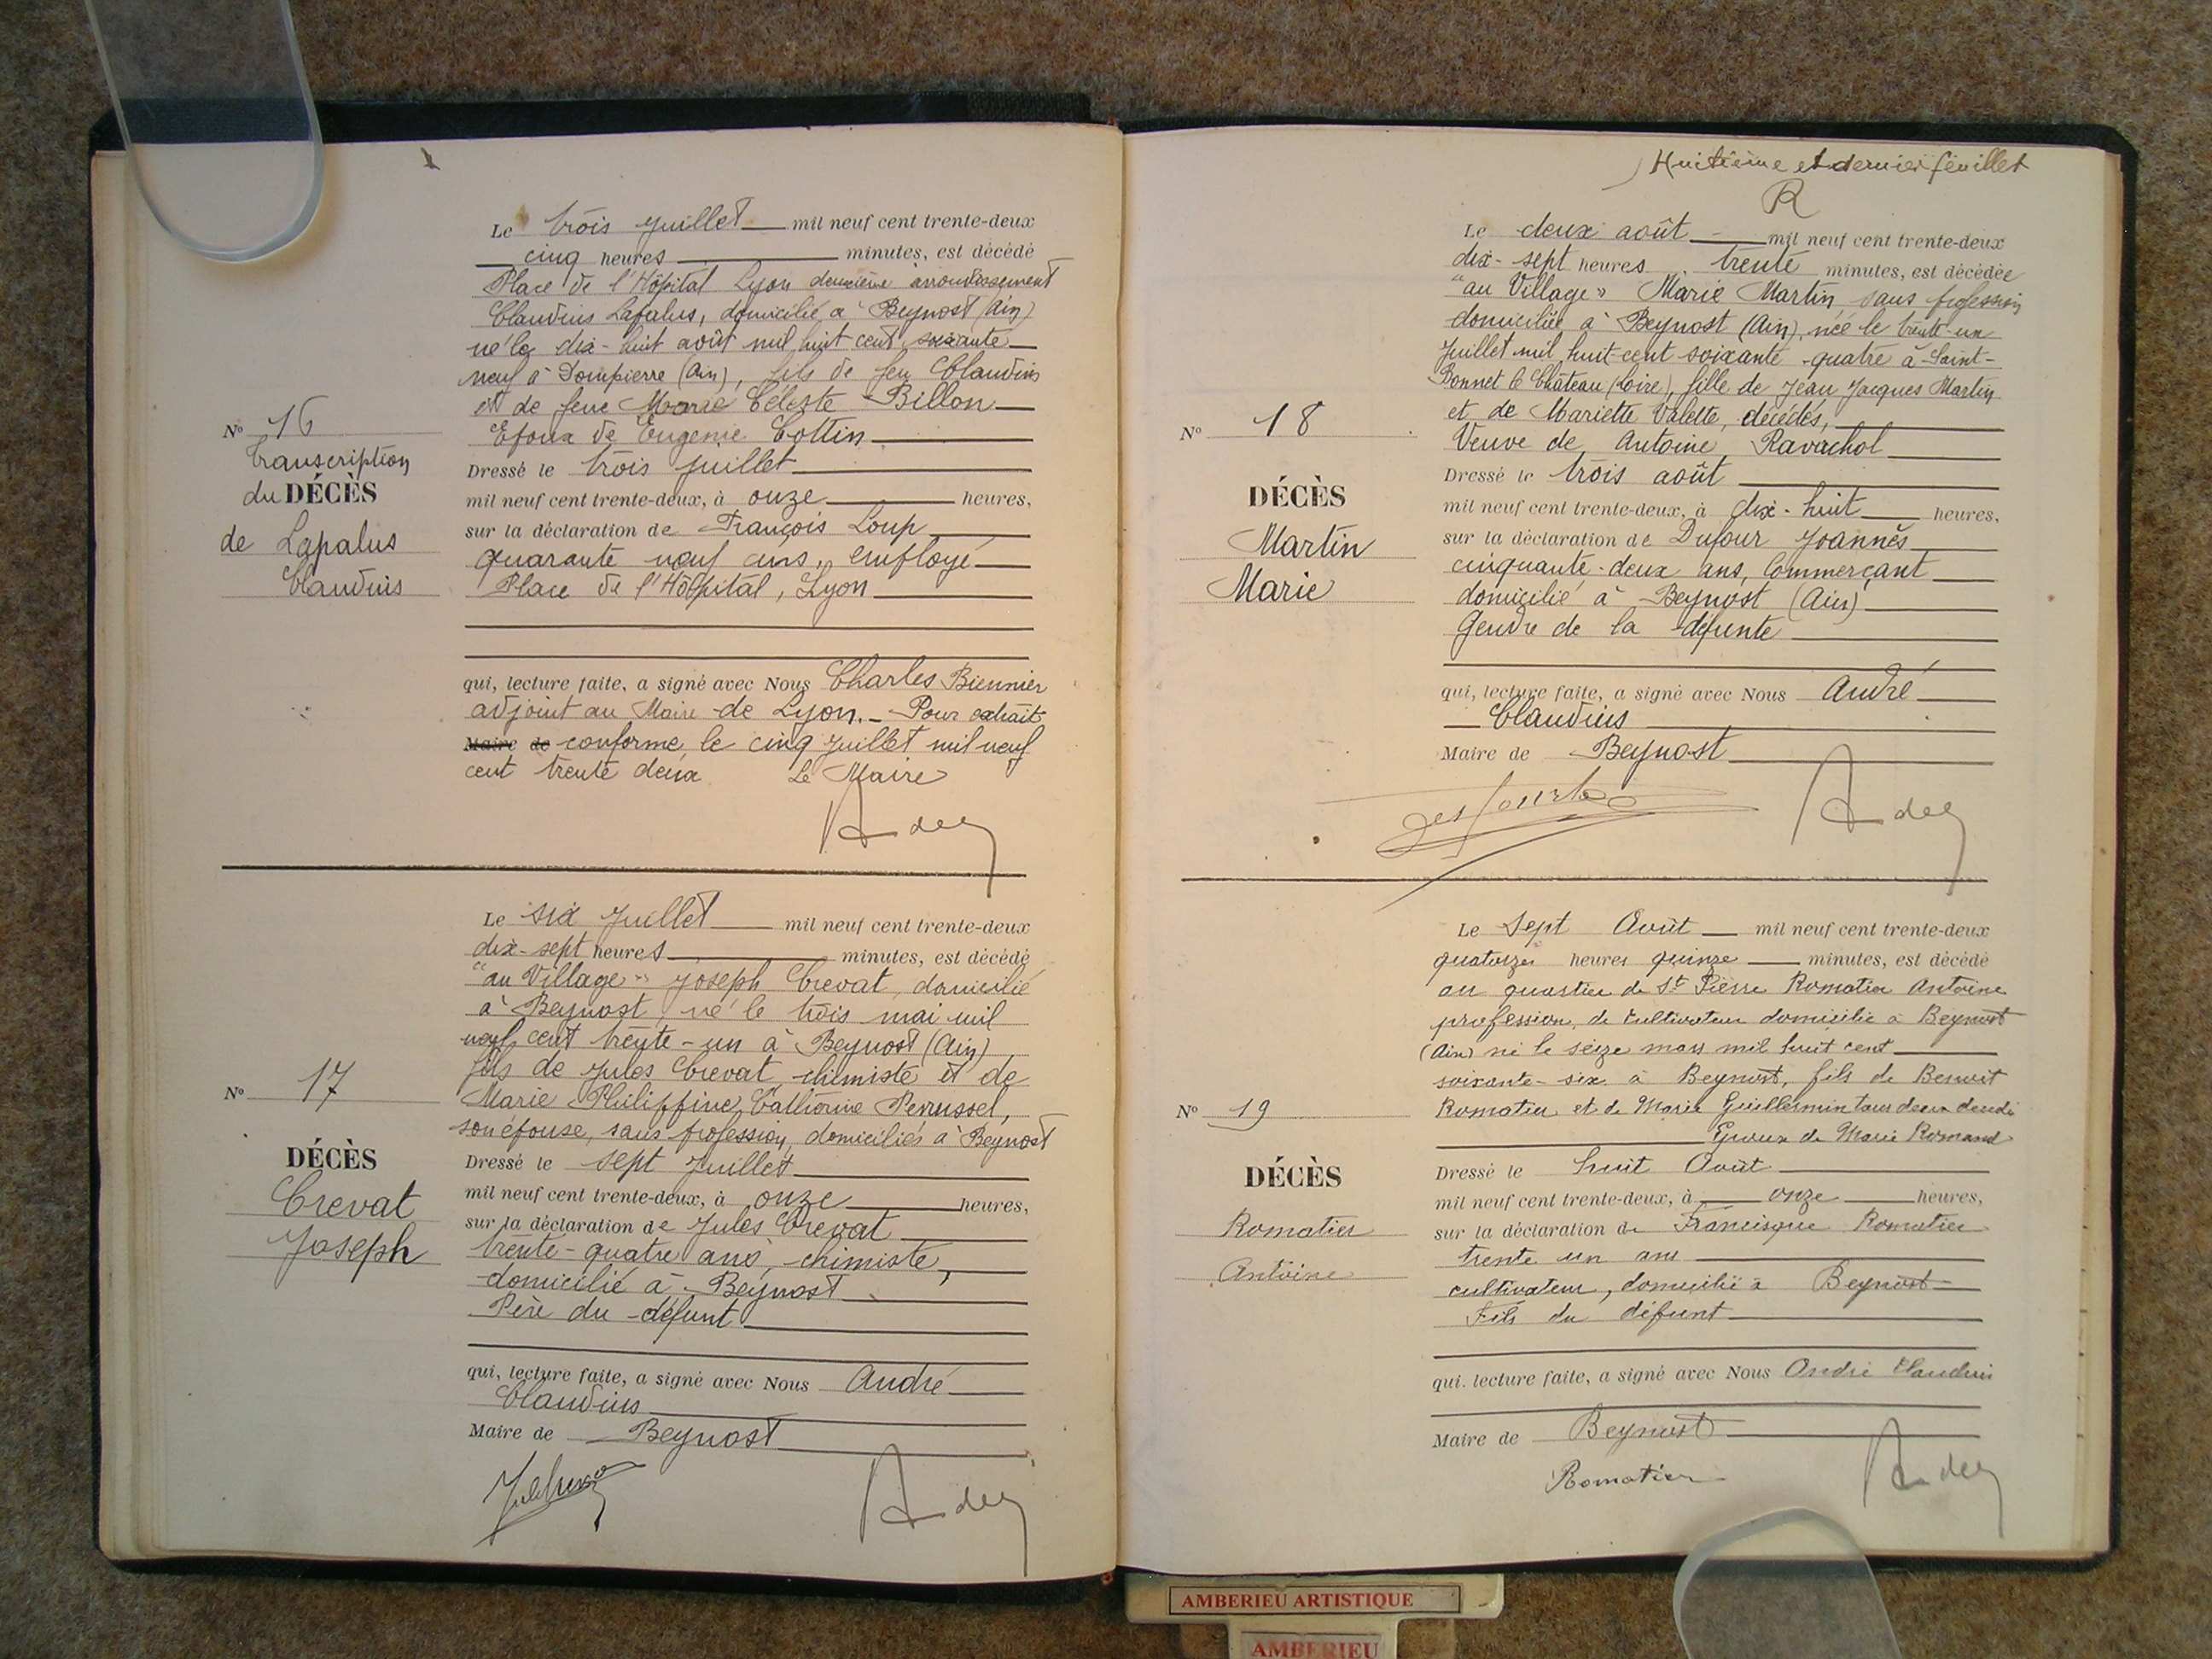 Le trois Juillet mil neuf cent trente-deux
cinq heures minutes, est décédé
Place de l'Hôpital Lyon deuxième arrondissement
Claudius Lapalus, domicilié à Beynost (Ain)
né le dix-huit août mil huit cent soixante
neuf à Dompierre (Ain), fils de feu Claudius
et de feue Marie Céleste Billon
Epoux de Eugenie Cottin
Dressé le trois Juillet
mil neuf cent trente-deux, à onze heures,
sur la déclaration de François Loup
quarante neuf ans, employé
Place de l'Hôpital, Lyon
qui, lecture faite, a signé avec Nous Charles Biennier
adjoint au Maire de Lyon. - Pour extrait
Maire de conforme, le cinq Juillet mil neuf
cent trente deux Le Maire
N° 16
Transcription
du DÉCÈS
de Lapalus
Claudius
Le six Juillet mil neuf cent trente-deux
dix-sept heures minutes, est décédé
"au Village" Joseph Crevat, domicilié
à Beynost, né le trois mai mil
neuf cent trente-un à Beynost (Ain)
fils de Jules Crevat, chimiste et de
Marie Philippine Catherine Perrussel,
son épouse, sans profession, domiciliés à Beynost
Dressé le sept Juillet
mil neuf cent trente-deux, à onze heures,
sur la déclaration de Jules Crevat
trente-quatre ans, chimiste,
domicilié à Beynost
Père du défunt
qui, lecture faite, a signé avec Nous André
Claudius
Maire de Beynost
N° 17
DÉCÈS
Crevat
Joseph
Huitième et dernier feuillet
R
Le deux août mil neuf cent trente-deux
dix-sept heures trente minutes, est décédée
"au Village" Marie Martin, sans profession
domiciliée à Beynost (Ain), née le trente-un
Juillet mil huit-cent soixante-quatre à Saint-
Bonnet le Château (Loire), fille de Jean Jacques Martin
et de Mariette Valette, décédés,
Veuve de Antoine Ravachol
Dressé le trois août
mil neuf cent trente-deux, à dix-huit heures,
sur la déclaration de Dufour Joannès
cinquante-deux ans, Commerçant
domicilié à Beynost (Ain)
Gendre de la défunte
qui, lecture faite, a signé avec Nous André
Claudius
Maire de Beynost
N° 18
DÉCÈS
Martin
Marie
Le Sept Août mil neuf cent trente-deux
quatorze heures quinze minutes, est décédé
au quartier de St Pierre Romatier Antoine
profession de cultivateur domicilié à Beynost
(Ain) né le seize mars mil huit cent
soixante-six à Beynost, fils de Benoit
Romatier et de Marie Guillermin tous deux décédés
Epoux de Marie Romand
Dressé le huit Août
mil neuf cent trente-deux, à onze heures,
sur la déclaration de Francisque Romatier
trente un ans
cultivateur, domicilié à Beynost
Fils du défunt
qui, lecture faite, a signé avec Nous André Claudius
Maire de Beynost
Romatier
N° 19
DÉCÈS
Romatier
Antoine
AMBERIEU ARTISTIQUE
AMBERIEU